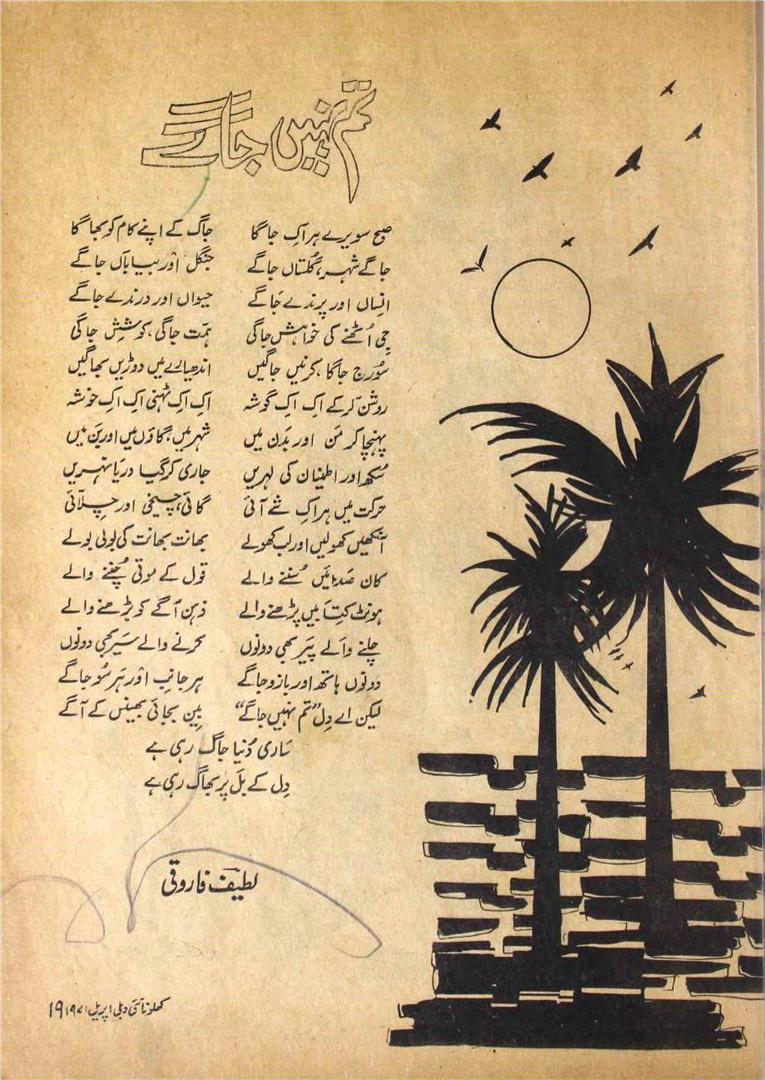 تم نہیں جاگے
صبح سویرے ہر اک جاگا جاگ کے اپنے کام کو بھاگا
جاگے شہر، گلستاں جاگے جنگل اور بیاباں جاگے
انساں اور پرندے جاگے حیواں اور درندے جاگے
جی اُٹھنے کی خواہش جاگی ہمت جاگی، کوشش جاگی
سورج جاگا، کرنیں جاگیں اندھیارے میں دوڑیں بھاگیں
روشن کرکے اک اک گوشہ اک اک ٹہنی اک اک خوشہ
پہنچا کر من اور بدن میں شہر میں، گاؤں میں اور بن میں
سکھ اور اطمینان کی لہریں جاری کر گیا دریا نہریں
حرکت میں ہر اک شے آئی گاتی، چیخی اور چلّائی
آنکھیں کھولیں اور لب کھولے بھانت بھانت کی بولی بولے
کان صدائیں سُننے والے قول کے موتی چُننے والے
ہونٹ کتابیں پڑھنے والے ذہن آگے کو بڑھنے والے
چلنے والے پیر بھی دونوں کرنے والے سیر بھی دونوں
دونوں ہاتھ اور بازو جاگے ہر جانب اور ہر سو جاگے
لیکن اے دل "تم نہیں جاگے" بین بجائی بھینس کے آگے
ساری دُنیا جاگ رہی ہے
دِل کے بل پر بھاگ رہی ہے
لطیف فاروقی
کھلونا نئی دہلی اپریل ۱۹۷۱ء ۱۹